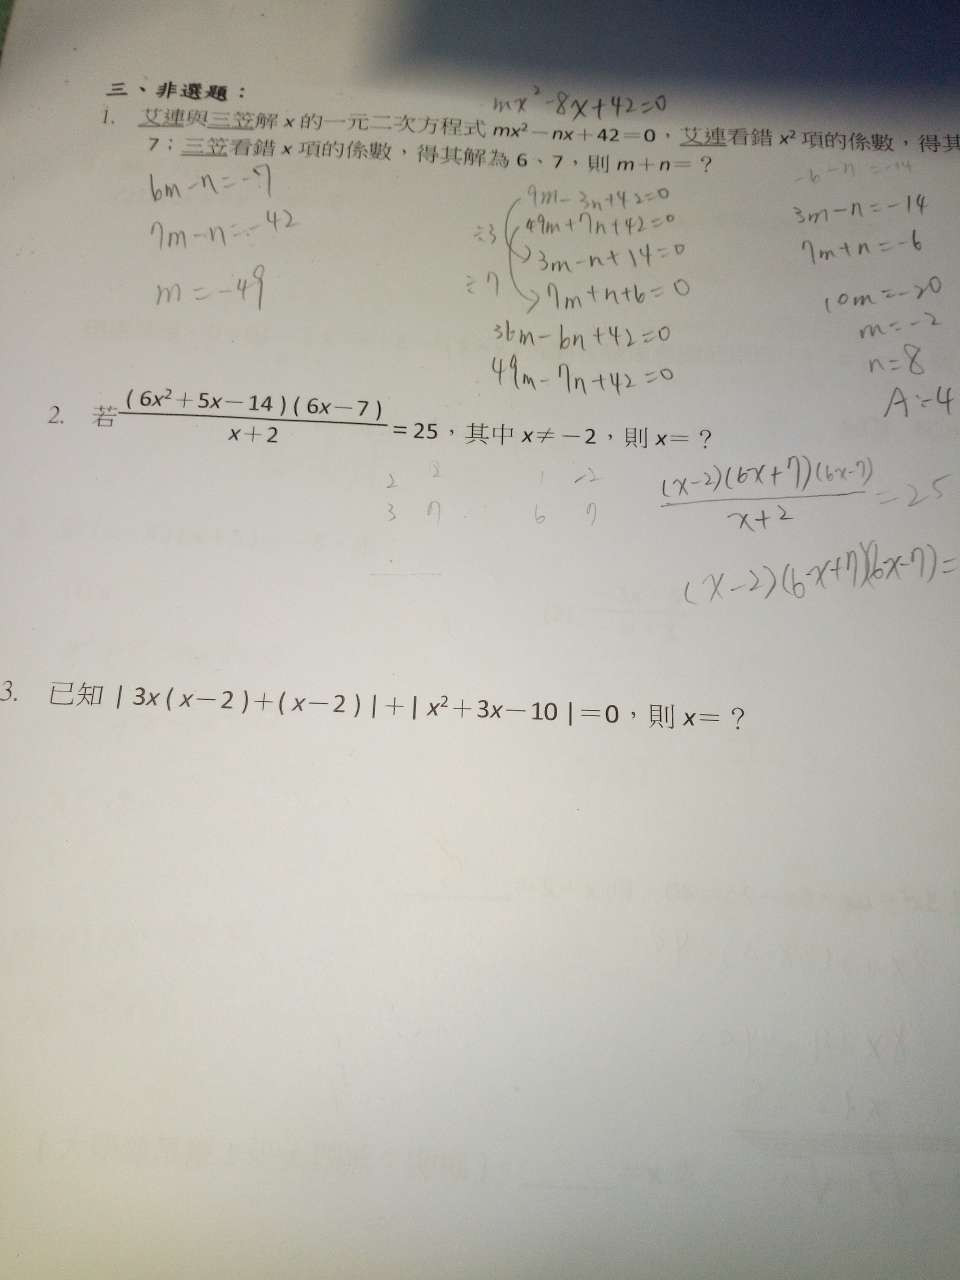 三、非選題：
mx²-8x+42=0
1. 艾連與三笠解 x 的一元二次方程式 mx²－nx＋42＝0，艾連看錯 x² 項的係數，得其
7；三笠看錯 x 項的係數，得其解為 6、7，則 m＋n＝？
6m-n=-7
7m-n=-42
m=-49
9m-3n+42=0
49m+7n+42=0
÷3
3m-n+14=0
÷7
7m+n+6=0
36m-6n+42=0
49m-7n+42=0
-6-n=-14
3m-n=-14
7m+n=-6
10m=-20
m=-2
n=8
A:-4
2. 若 (6x²＋5x－14)(6x－7)/x＋2 ＝25，其中 x≠－2，則 x＝？
2 2 1 -2
3 7 6 7
(x-2)(6x+7)(6x-7)/x+2 =25
(x-2)(6x+7)(6x-7)=
3. 已知｜3x(x－2)＋(x－2)｜＋｜x²＋3x－10｜＝0，則 x＝？